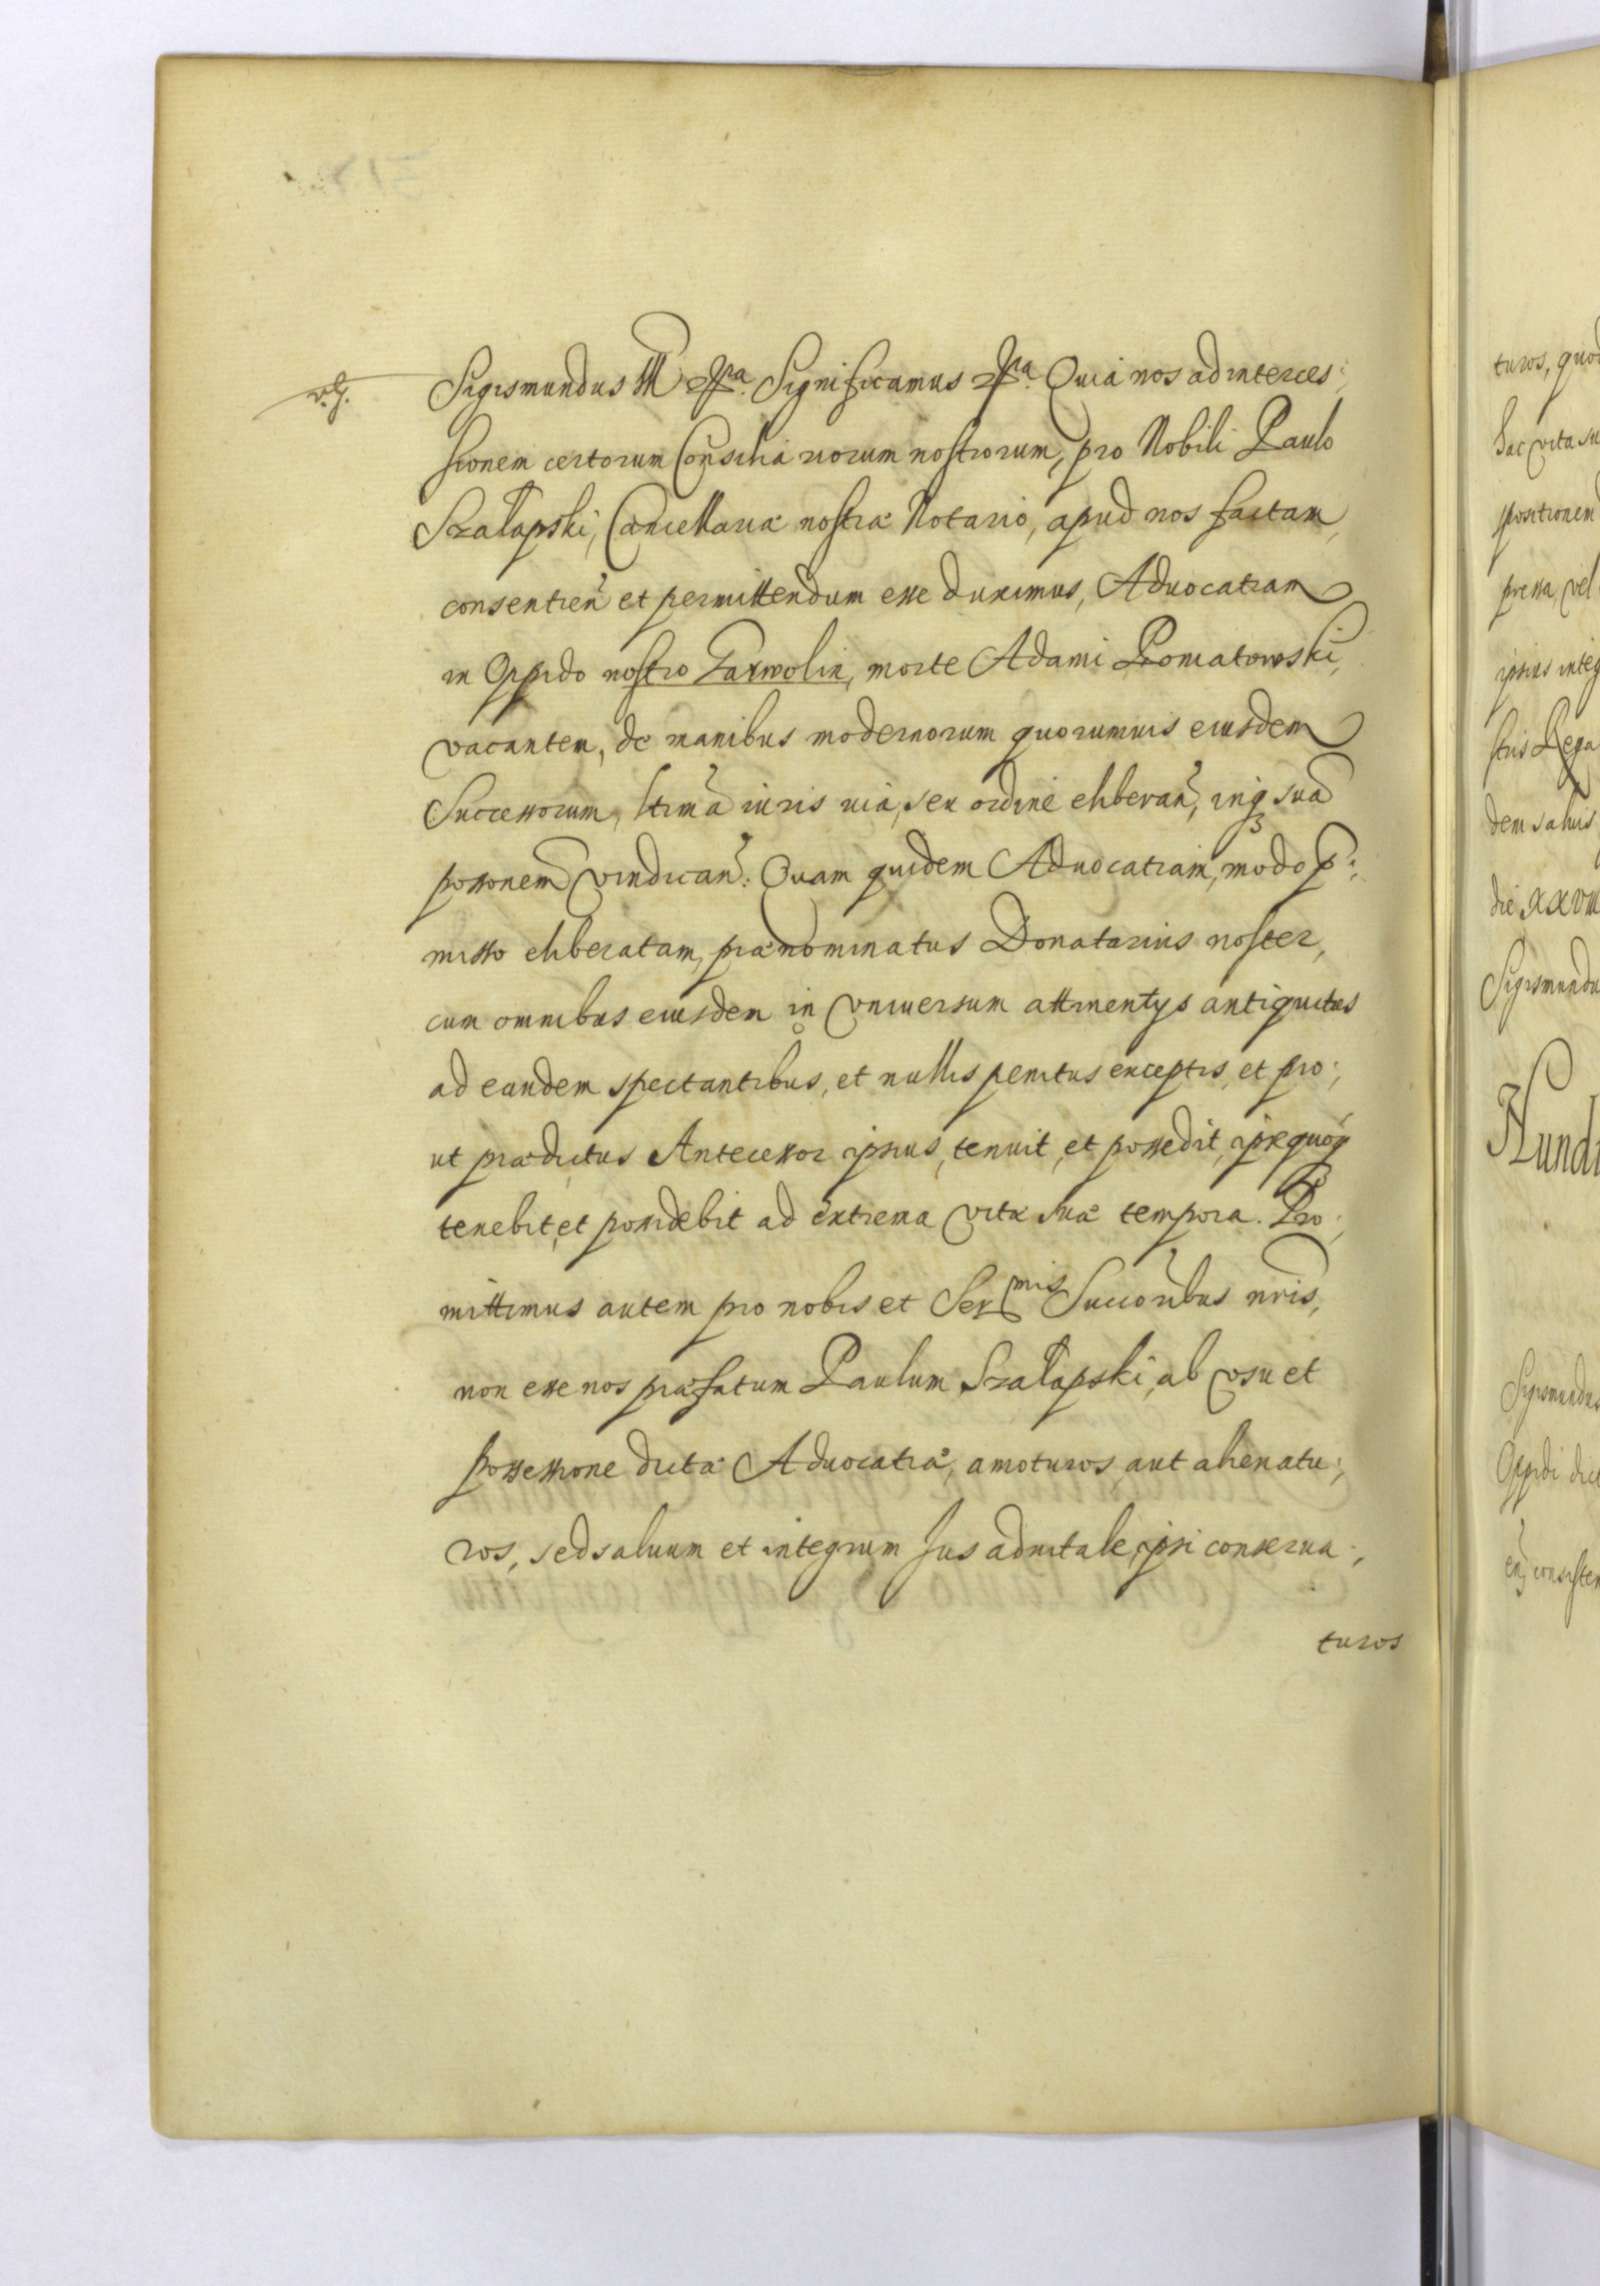 Sigismundus III etc. Significamus etc. Quia nos ad interces:
sionem certorum Consiliariorum nostrorum, pro Nobili Paulo
Szałapski, Cancellariæ nostræ Notario, apud nos factam,
consentien̄ et permittendum esse duximus, Aduocatiam
in Oppido nostro Garwolin, morte Adami Poniatowski,
vacantem, de manibus modernorum quorumuis eiusdem
Successorum, ltima iuris uia, seu ordine eliberan̄, inq3 suā
possonem vindican̄. Quam quidem Aduocatiam, modo p:
misso eliberatam, prænominatus Donatarius noster,
cum omnibus eiusdem in vniuersum attinentys antiquitus
ad eandem spectantibus, et nullis penitus exceptis, et pro:
ut prædictus Antecessor ipsius, tenuit, et possedit, ipse quoq3
tenebit, et possidebit ad extrema vitæ suæ tempora. Pro:
mittimus autem pro nobis et Ser mis Succoribus nris,
non esse nos præfatum Paulum Szałapski, ab vsu et
possessione dictæ Aduocatiæ, amoturos aut alienatu:
ros, sed saluum et integrum Jus aduitale, ipsi conserua:
turos
turos, quod
hac vita su
positionem
pressa, vel
ipsius integ
stris Rega
dem saluis
die XXVIII
Sigismundu
Nundi
Sigismundus
Oppidi dict